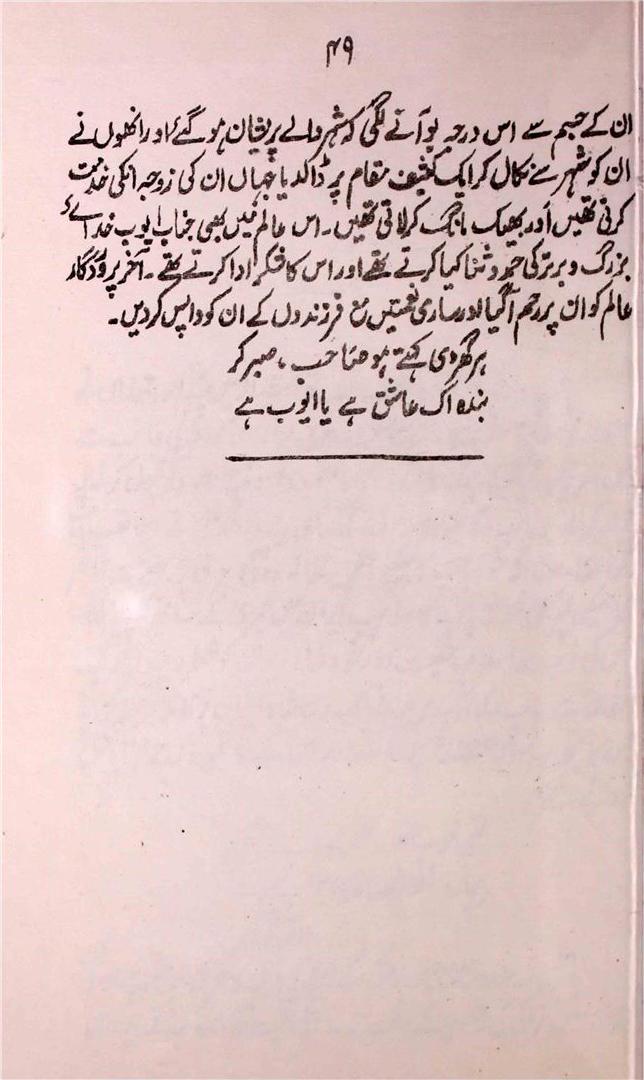 ۴۹
ان کے جسم سے اس درجہ بو آنے لگی کہ شہر والے پریشان ہو گئے اور انھوں نے
ان کو شہر سے نکال کر ایک کثیف مقام پر ڈالدیا جہاں ان کی زوجہ انکی خدمت
کرتی تھیں اور بھیک مانگ کر لاتی تھیں۔ اس عالم میں بھی جناب ایوب خدائے
بزرگ و برتر کی حمد و ثنا کیا کرتے تھے اور اس کا شکر ادا کرتے تھے۔ آخر پروردگار
عالم کو ان پر رحم آگیا اور ساری نعمتیں مع فرزندوں کے ان کو واپس کر دیں۔
ہر گھڑی کہتے ہو صاحب، صبر کر
بندہ اک عاشق ہے یا ایوب ہے